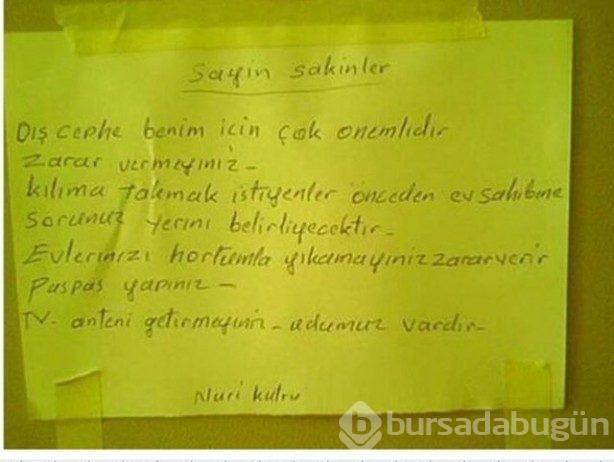 Sayin sakinler
Dış cephe benim için çok onemlidir
Zarar vermeyiniz -
kılıma takmak istiyenler önceden ev sahibine
sorunuz yerini belirliyecektir -
Evlerinizi hortumla yıkamayınız zarar verir
Paspas yapınız -
TV. anteni getirmeyiniz - udumuz vardır -
Nuri
bursadabugün